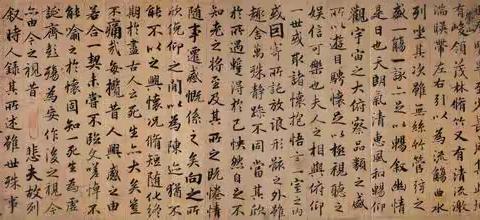 有峻領茂林脩竹又有清流激
湍暎帶左右引以為流觴曲水
列坐其次雖無絲竹管弦之
盛一觴一詠亦足以暢敘幽情
是日也天朗氣清惠風和暢仰
觀宇宙之大俯察品類之盛
所以遊目騁懷足以極視聽之
娛信可樂也夫人之相與俯仰
一世或取諸懷抱悟言一室之內
或因寄所託放浪形骸之外雖
趣舍萬殊靜躁不同當其欣
於所遇蹔得於己怏然自足不
知老之將至及其所之既惓情
隨事遷感慨係之矣向之所
欣俛仰之間以為陳迹猶不
能不以之興懷況脩短隨化終
期於盡古人云死生亦大矣豈
不痛哉每攬昔人興感之由
若合一契未嘗不臨文嗟悼不
能喻之於懷固知一死生為虛
誕齊彭殤為妄作後之視今
亦由今之視昔 悲夫故列
敘時人錄其所述雖世殊事